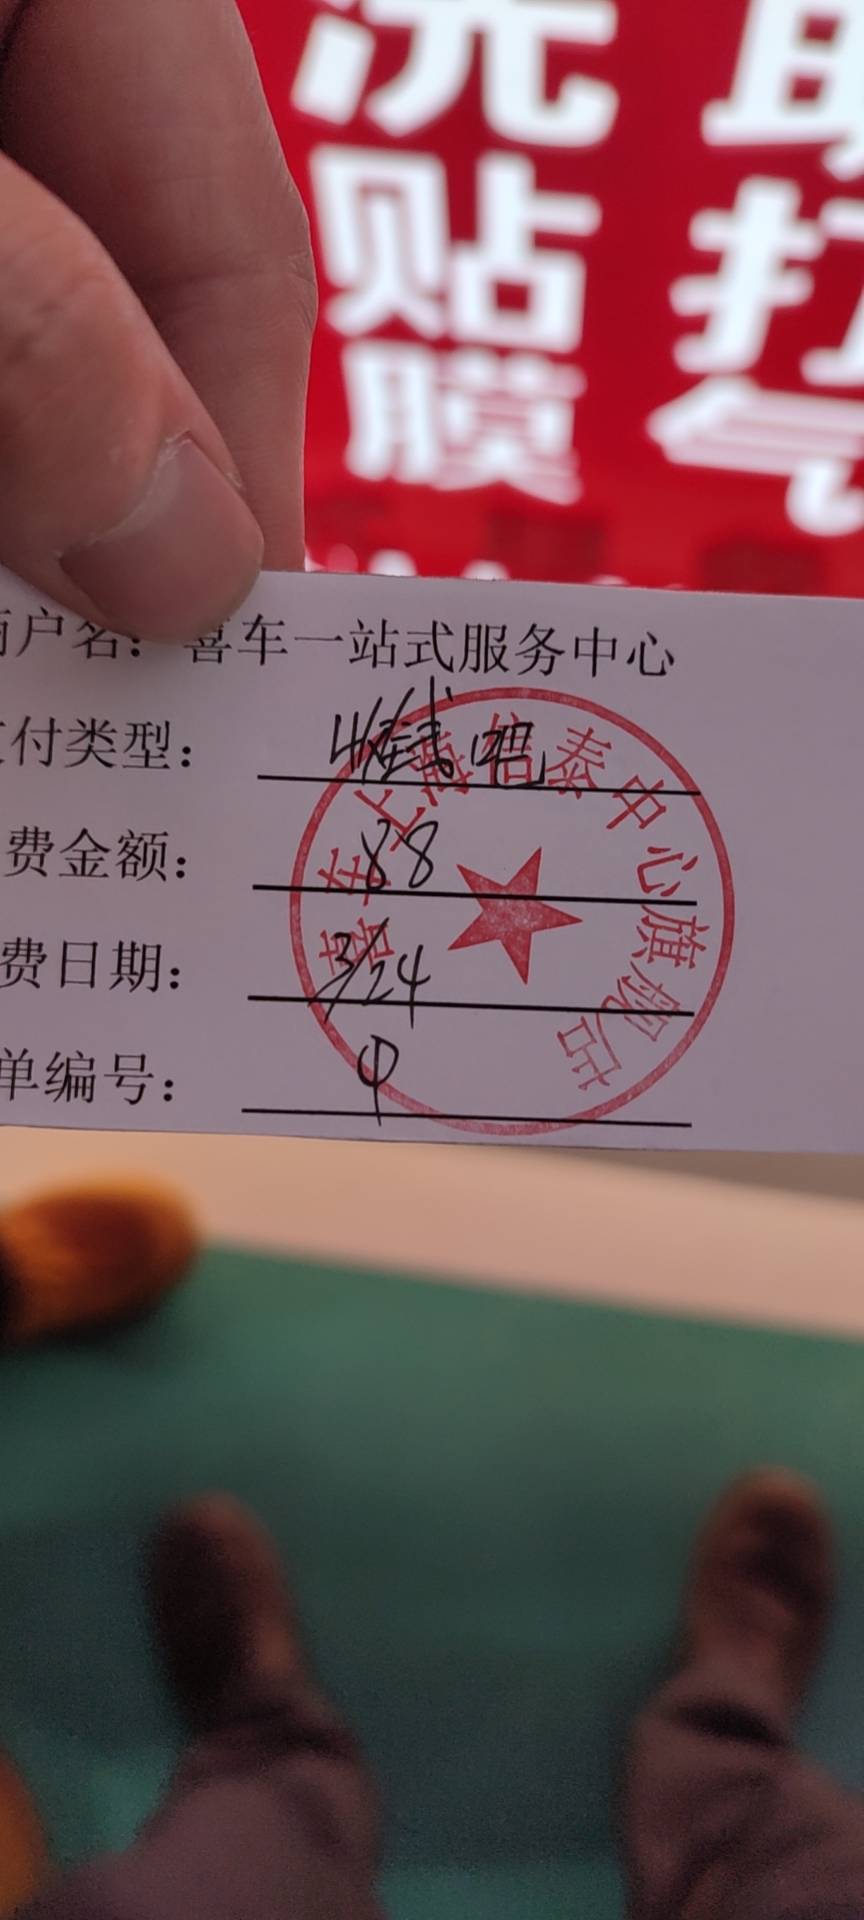 洗
贴
膜
打
气
商户名：喜车一站式服务中心
支付类型：收钱吧
费金额：88
费日期：3/24
单编号：
喜车上海信泰中心旗舰店